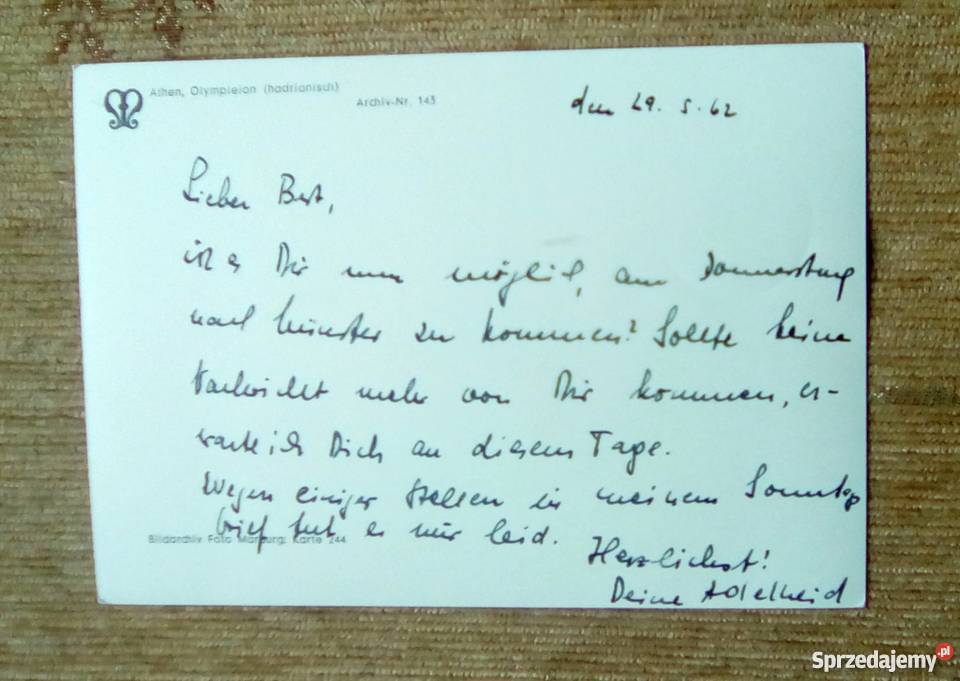 Athen, Olympieion (hadrianisch)
Archiv-Nr. 143
den 29. 5. 62
Lieber Bert,
ist es Dir nun möglich, am Donnerstag
nach Münster zu kommen? Sollte keine
Nachricht mehr von Dir kommen, er-
warte ich Dich an diesem Tage.
Wegen einiger Stellen in meinem Sonntag
brief tut es mir leid.
Bildarchiv Foto Marburg: Karte 244
Herzlichst!
Deine Adelheid
Sprzedajemy.pl